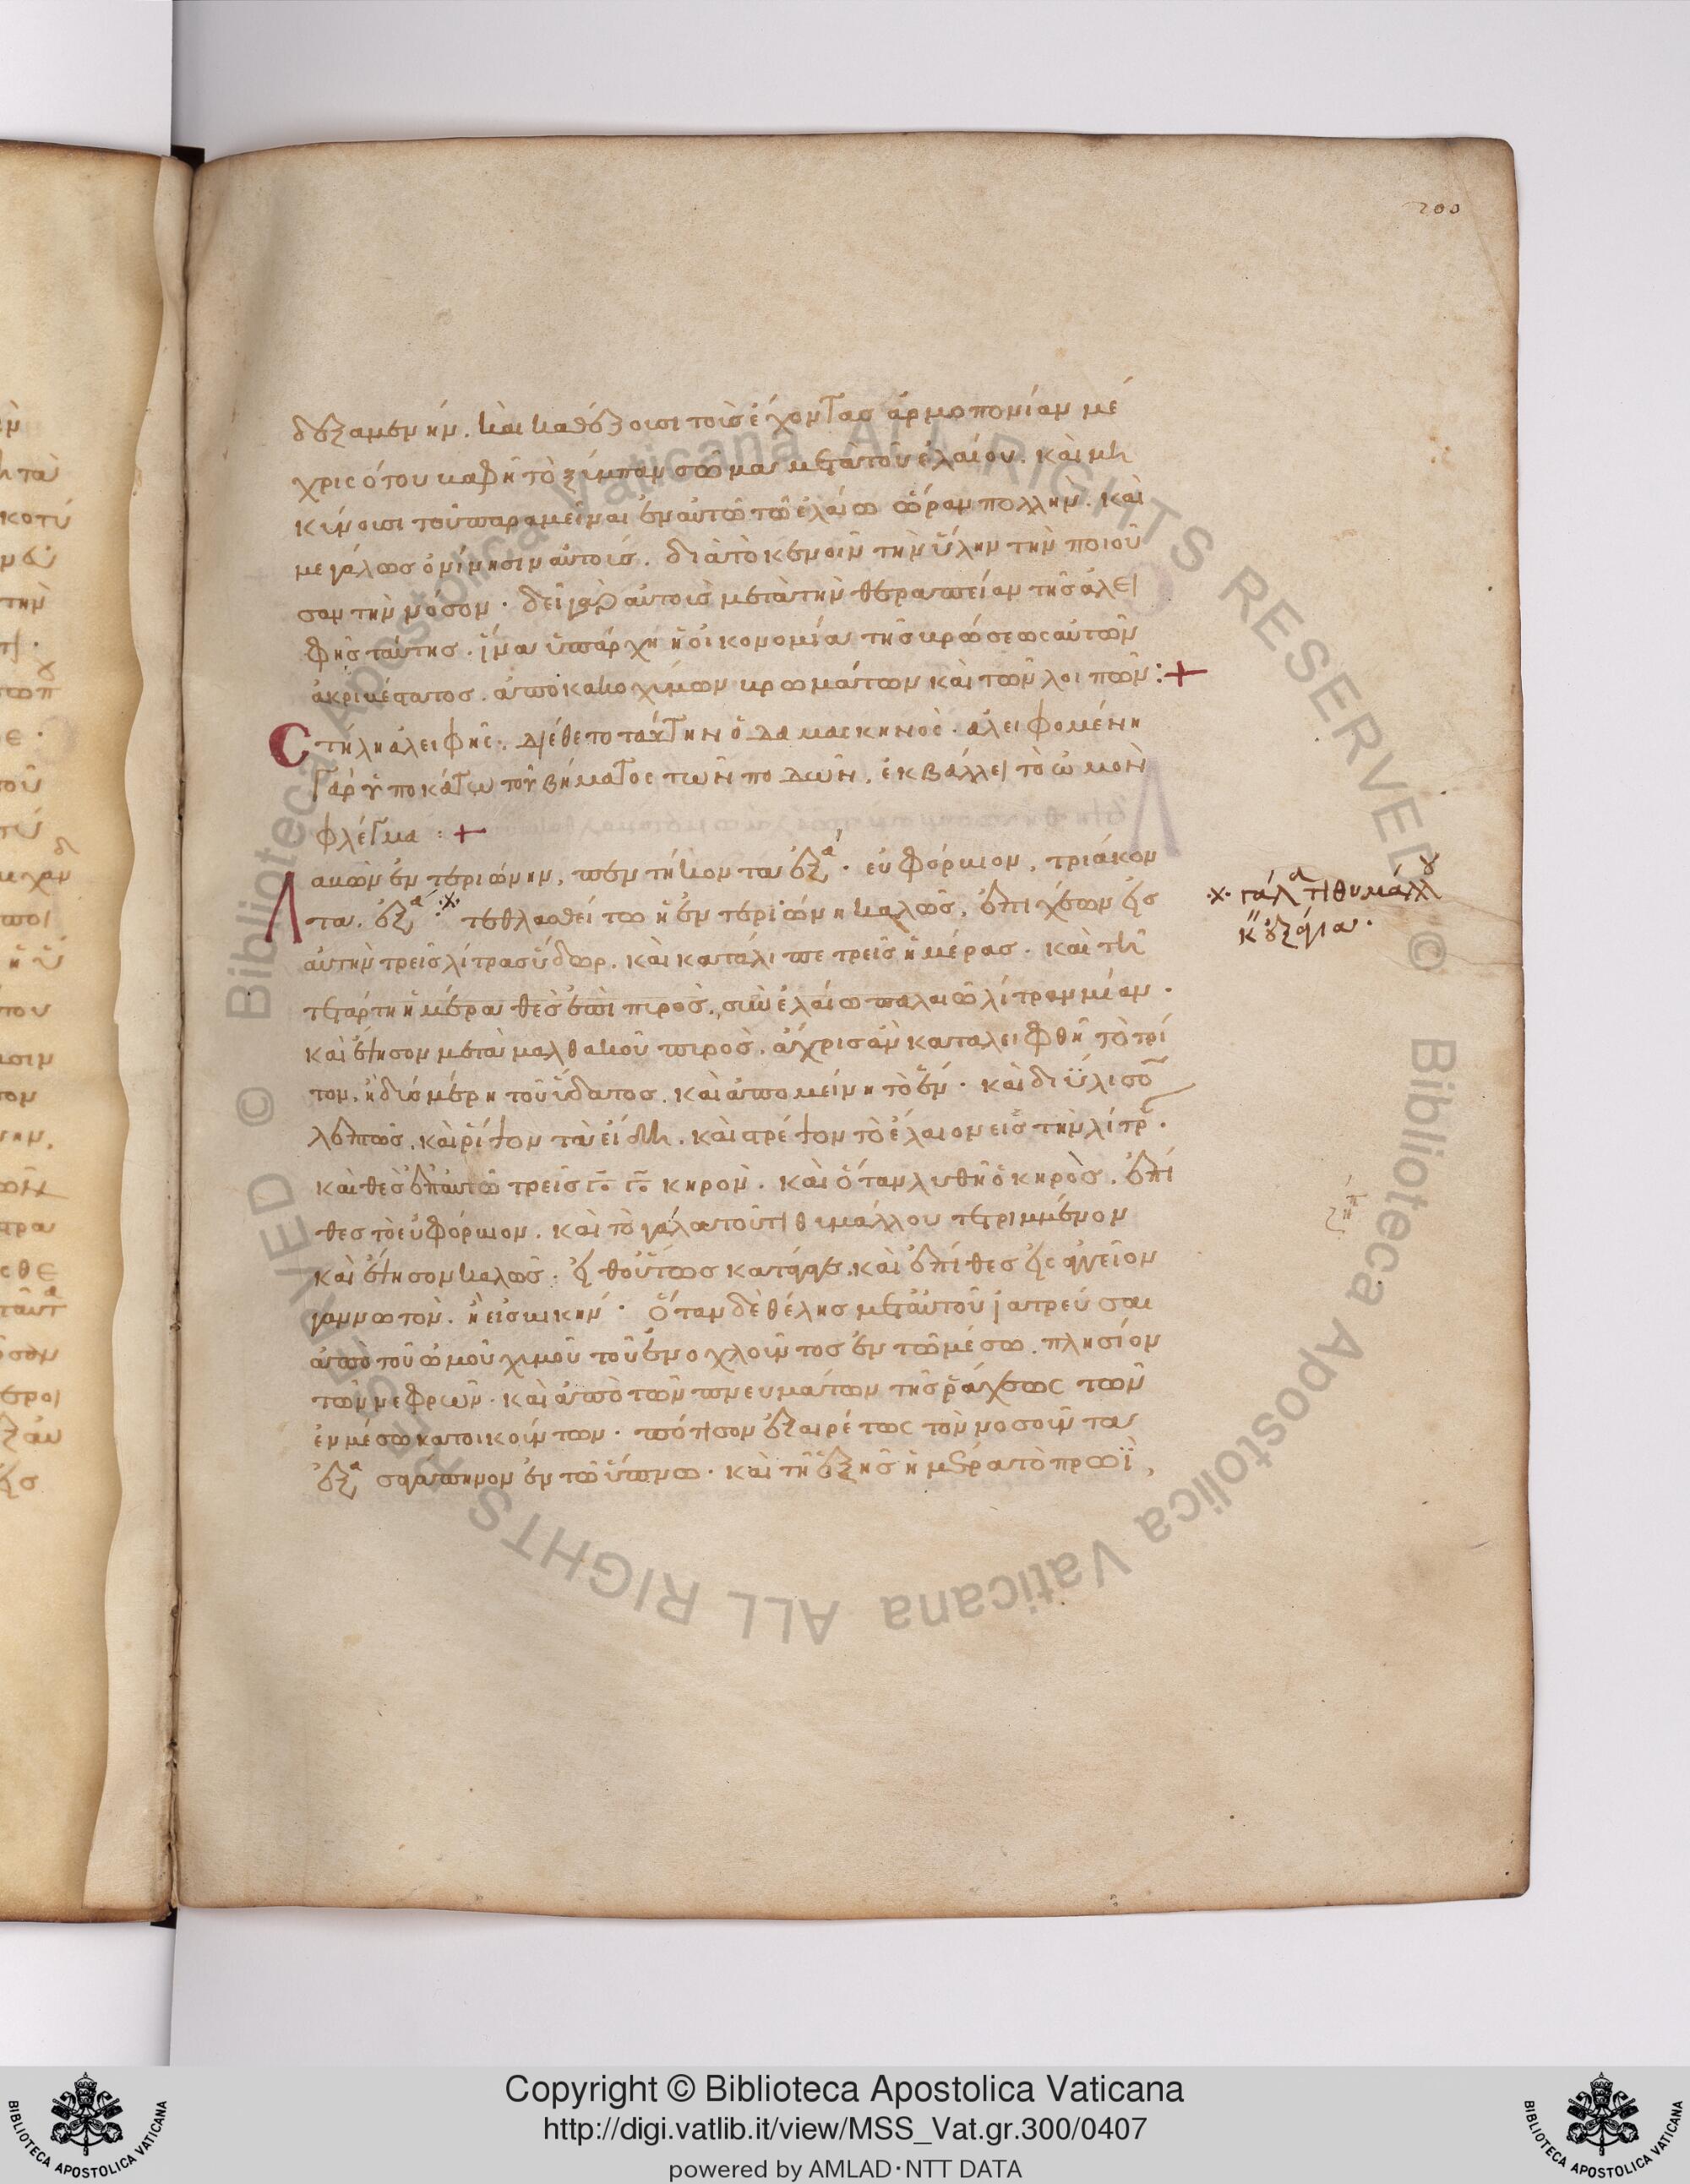 200
δεξαμενήν. καὶ καθέζουσι τοῖς ἔχουσιν ἀρμοπονίαν μέ
χρις ὅτου καφῆ τὸ ξύμπαν σῶμα μετὰ τοῦ ἐλαίου. καὶ μὴ
τοῦ παραμεῖναι ἐν αὐτῶ τῶ ἐλαίω ὥραν πολλήν. καὶ
μεγάλως ὀνίνησιν αὐτοῖς. διὰ τὸ κενοῦν τὴν ὕλην τὴν ποιοῦ
σαν τὴν νόσον. δεῖ γὰρ αὐτοῖς μετὰ τὴν θεραπείαν τῆς ἀλει
φῆς ταύτης. ἵνα ὑπάρχη ἡ οἰκονομία τῆς βρώσεως αὐτῶν
ἀκριβέστατος. ἀπὸ κακοχύμων βρωμάτων καὶ τῶν λοιπῶν :+
Στήλη ἀλειφῆς. διέθετο ταύτην ὁ δαμασκηνός. ἀλειφομένη
γὰρ ὑποκάτω τοῦ βήματος τῶν ποδῶν. ἐκβάλλει τὸ ὠμὸν
φλέγμα :+
Λαβὼν ἐν περιώνην, πεντήκοντα ἑξα. εὐφόρβιον, τριάκον
τα. ἑξα ·χ· τεθλασθείτω ἡ ἐντεριώνη καλῶς. ἐπιχέων εἰς
αὐτὴν τρεῖς λίτρας ὕδωρ. καὶ κατάλιπε τρεῖς ἡμέρας. καὶ τῆ
τετάρτη ἡμέρα θὲς ἐπὶ πυρός. σὺν ἐλαίω παλαιῶ λίτραν μίαν.
καὶ ἕψησον μετὰ μαλθακοῦ πυρός. ἄχρις ἂν καταλειφθῆ τὸ τρί
τον. ἢ δύο μέρη τοῦ ὕδατος. καὶ ἀπομείνη τὸ ἕν. καὶ διϋλισο
λεπτῶς. καὶ ῥίψον τὰ εἴδη. καὶ στρέψον τὸ ἔλαιον εἰς τὴν λίτρ.
καὶ θὲς ἐπ' αὐτῶ τρεῖς γο γο κηρόν. καὶ ὅταν λυθῆ ὁ κηρός. ἐπί
θες τὸ εὐφόρβιον. καὶ τὸ γάλα τοῦ τιθυμάλλου τετριμμένον
καὶ ἕψησον καλῶς. εἶθ' οὕτως κατάγαγε. καὶ ἐπίθες εἰς ἀγγεῖον
γανωτόν. ἢ εἰς βικήν. ὅταν δὲ θέλης μετ' αὐτοῦ ἰατρεῦσαι
ἀπὸ τοῦ ὠμοῦ χυμοῦ τοῦ ἐνοχλοῦντος ἐν τῶ μέσω. πλησίον
τῶν νεφρῶν. καὶ ἀπὸ τῶν πνευμάτων τῆς ῥάχεως τῶν
ἐν μέσω κατοικούντων. πότισον ἐξαιρέτως τὸν νοσοῦντα
ἑξα σαγάπηνον ἐν τῶ ὕπνω. καὶ τῆ ἑξῆς ἡμέρα τὸ πρωῒ,
·χ· γάλα τιθυμάλλου
κ ἑξάγια.
Copyright © Biblioteca Apostolica Vaticana
http://digi.vatlib.it/view/MSS_Vat.gr.300/0407
powered by AMLAD·NTT DATA